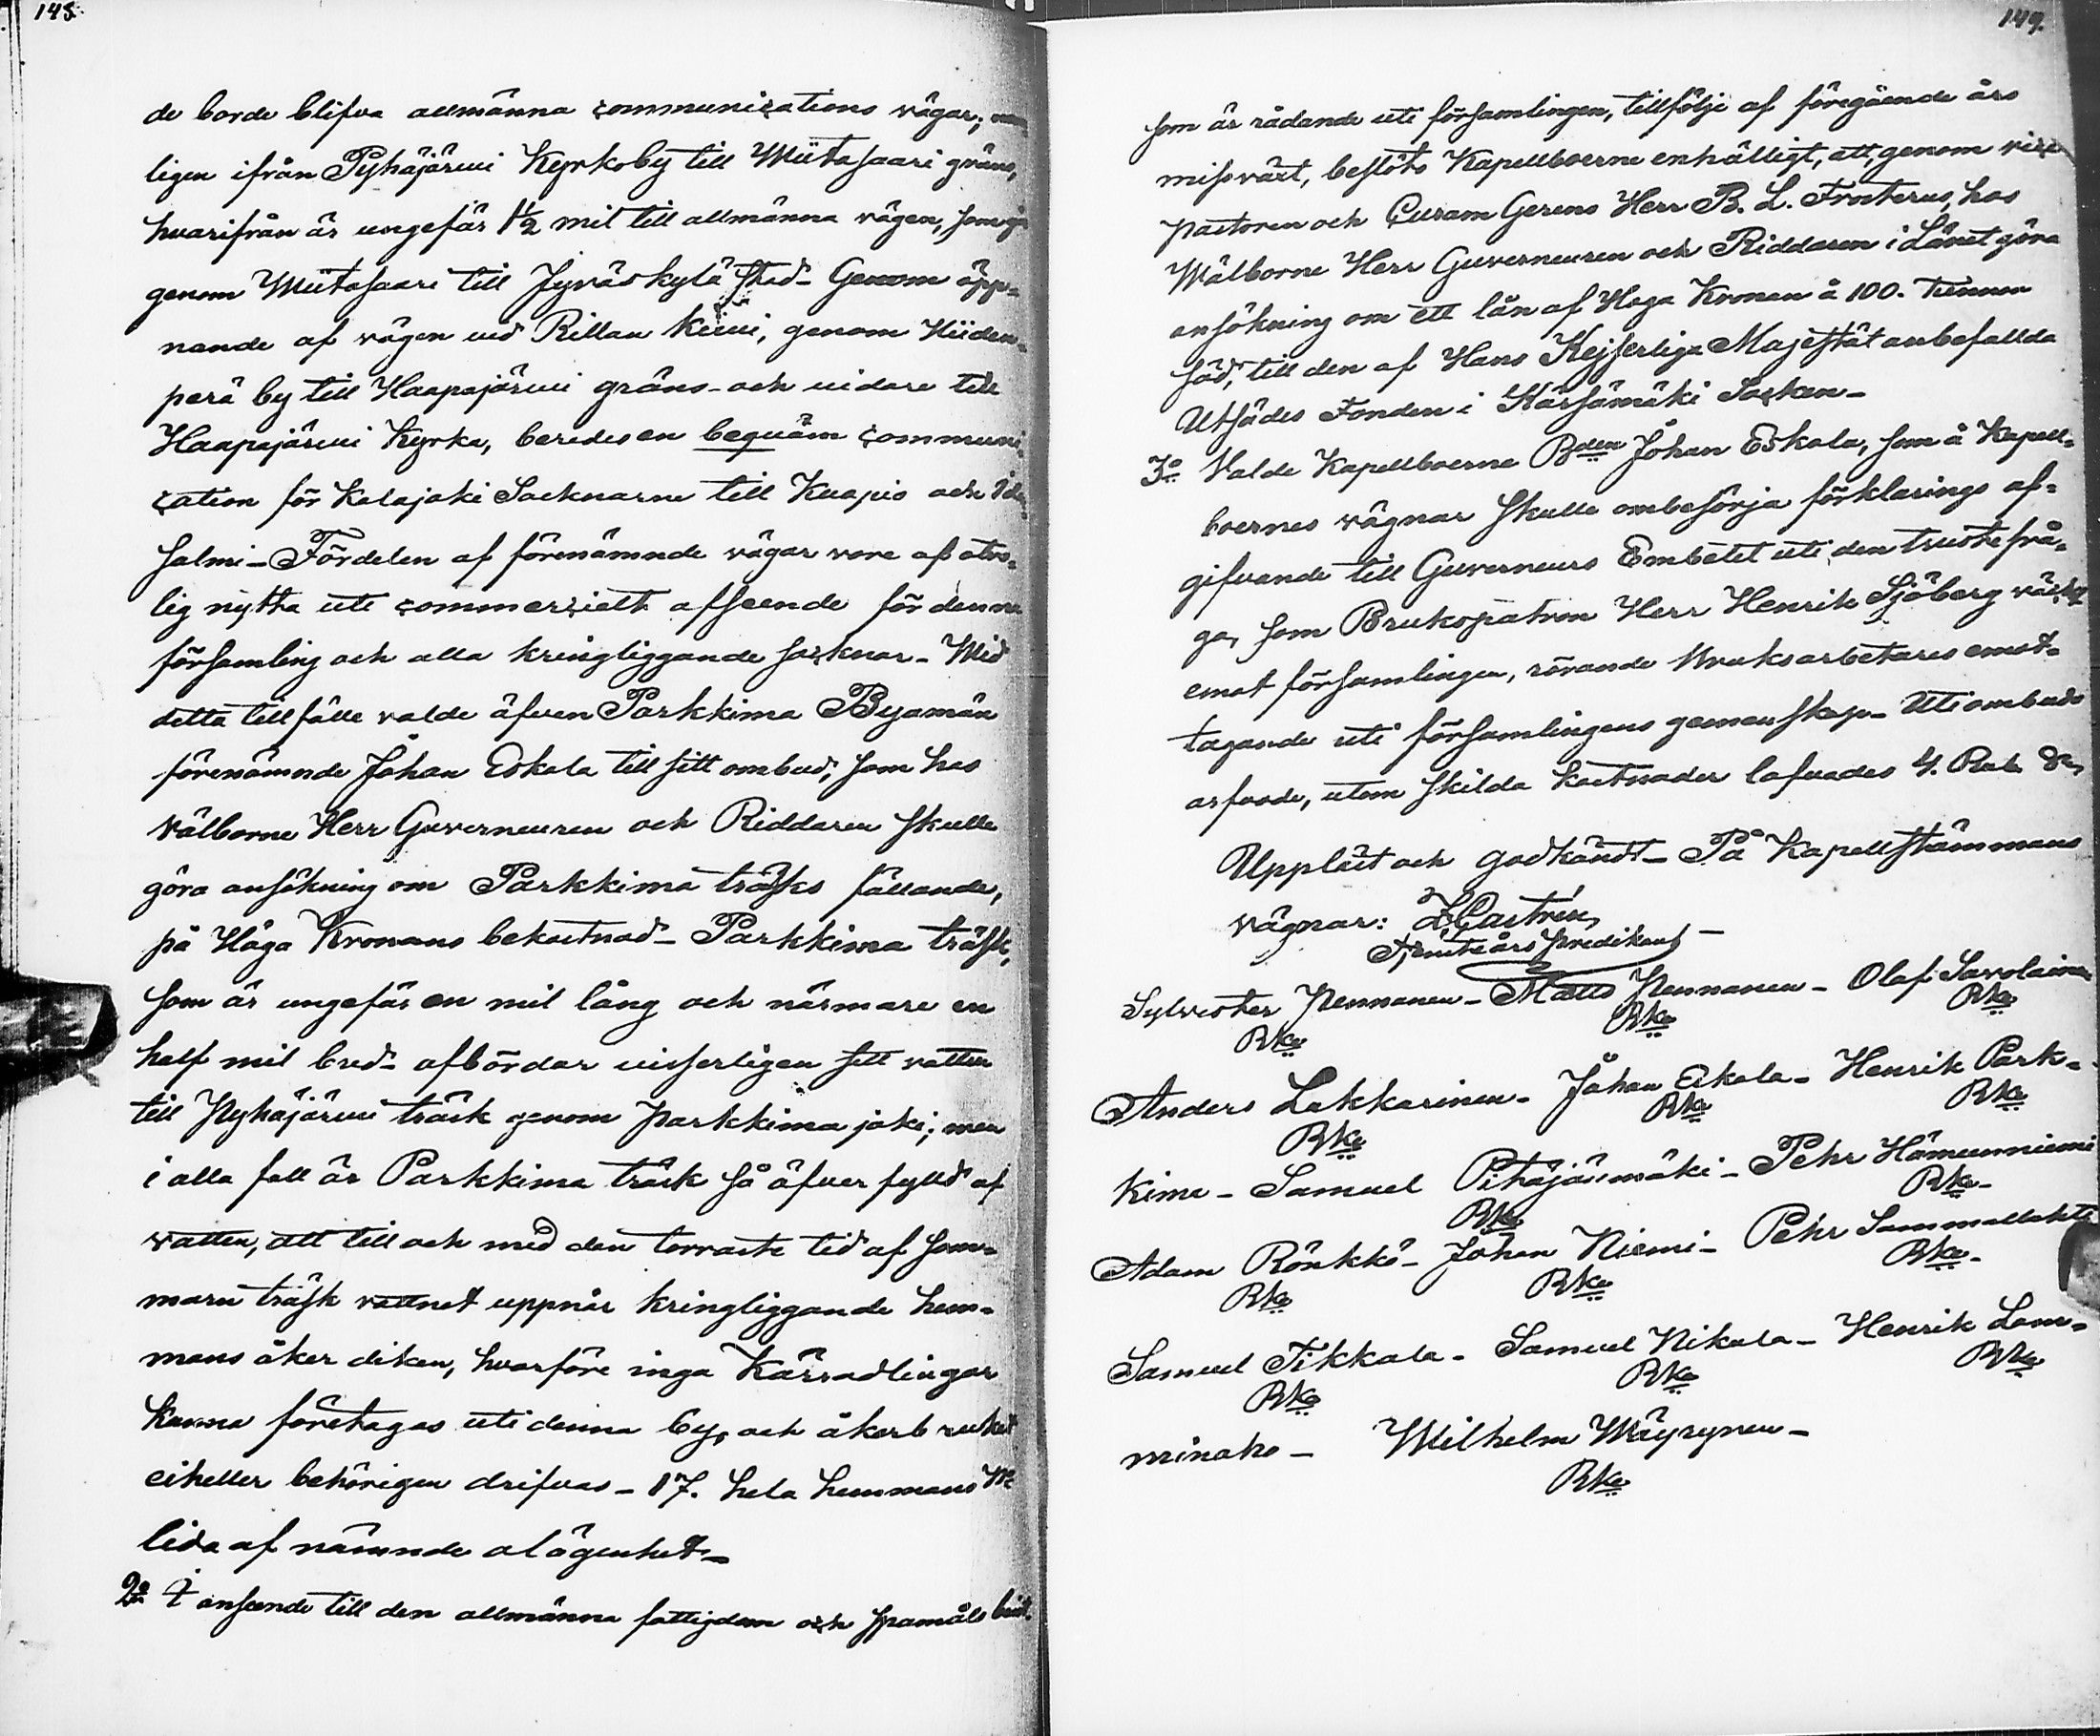 148.
de borde blifva allmänna communications vägar; nem
ligen ifrån Pyhäjärwi Kyrkoby till Wiitasaari gräns,
hvarifrån är ungefär 1 1/2 mil till allmänna vägen, som går
genom Wiitasaari till Jyväskylä stad_ Genom öpp-
nande af vägen vid Rillan kiwi, genom Hiiden-
perä by till Haapajärwi gräns_ och vidare till
Haapajärwi Kyrka, beredes en beqväm communi-
cation för Kalajoki Socknarne till Kuopio och Iden-
salmi_ Fördelen af förenämnde vägar vore af otro-
lig nytta uti commercielt afseende för denna
församling och alla kringliggande socknar_ Wid
detta tillfälle valde äfven Parkkima Byamän
förenämnde Johan Eskola till sitt ombud, som hos
välborne Herr Guverneuren och Riddaren skulle
göra ansökning om Parkkima träsks fällande,
på Höga Kronans bekostnad_ Parkkima träsk,
som är ungefär en mil lång och närmare en
half mil bred_ afbördar visserligen sitt vatten
till Pyhäjärwi träsk genom Parkkima joki; men
i alla fall är Parkkima träsk så äfver fylld af
vatten, att till och med den torraste tid af som-
maren träsk vattnet uppnår kringliggande hem-
mans åker diken, hvarföre inga Kärrodlingar
kunna företagas uti denna by, och åkerbruket
eiheller behörigen drifvas_ 17. hela hemmans N:r
lida af nämnde olägenhet_
2:o I anseende till den allmänna fattigdom och spanmåls brist,
149.
som är rådande uti församlingen, tillfölje af föregående års
missväxt, beslöts Kapellboerne enhälligt, att, genom vice
pastoren och Curam Gerens Herr B. L. Frosterus, hos
Wälborne Herr Guverneuren och Riddaren i Länet göra
ansökning om ett lån af Höga Kronan å 100. Tunnor
säd, till den af Hans Kejserliga Majestät anbefallda
Utsädes Fonden i Kärsämäki Socken_
3:o Valde Kapellboerne Bonden Johan Eskola, som å Kapell-
boernes vägnar skulle ombesörja förklarings af-
gifvande till Guverneurs Embetet uti den tvistefrå-
ga, som Brukspatron Herr Henrik Sjöberg väckt
emot församlingen, rörande bruksarbetares emot-
tagande uti församlingens gemenskap_ Uti ombuds
arfvode, utom skilda kostnader lofvades 4. Rub. Sr,
Uppläst och godkändt_ På Kapellstämmans
vägnar: Z. Castrén,
Tjenste års predikant_
Sylvester Pennanen_ Matts Pennanen_ Olof Savolainen
Bke Bke Bke
Anders Lakkarinen_ Johan Eskola_ Henrik Park-
Bke Bke Bke
kima_ Samuel Pitäjänmäki_ Pehr Hämeenniemi
Bke Bke_
Adam Rönkkö_ Johan Niemi_ Pehr Sammallahti
Bke Bke Bke_
Samuel Tikkala_ Samuel Nikula_ Henrik Lam-
Bke Bke Bke
minaho_ Wilhelm Wäyrynen_
Bke